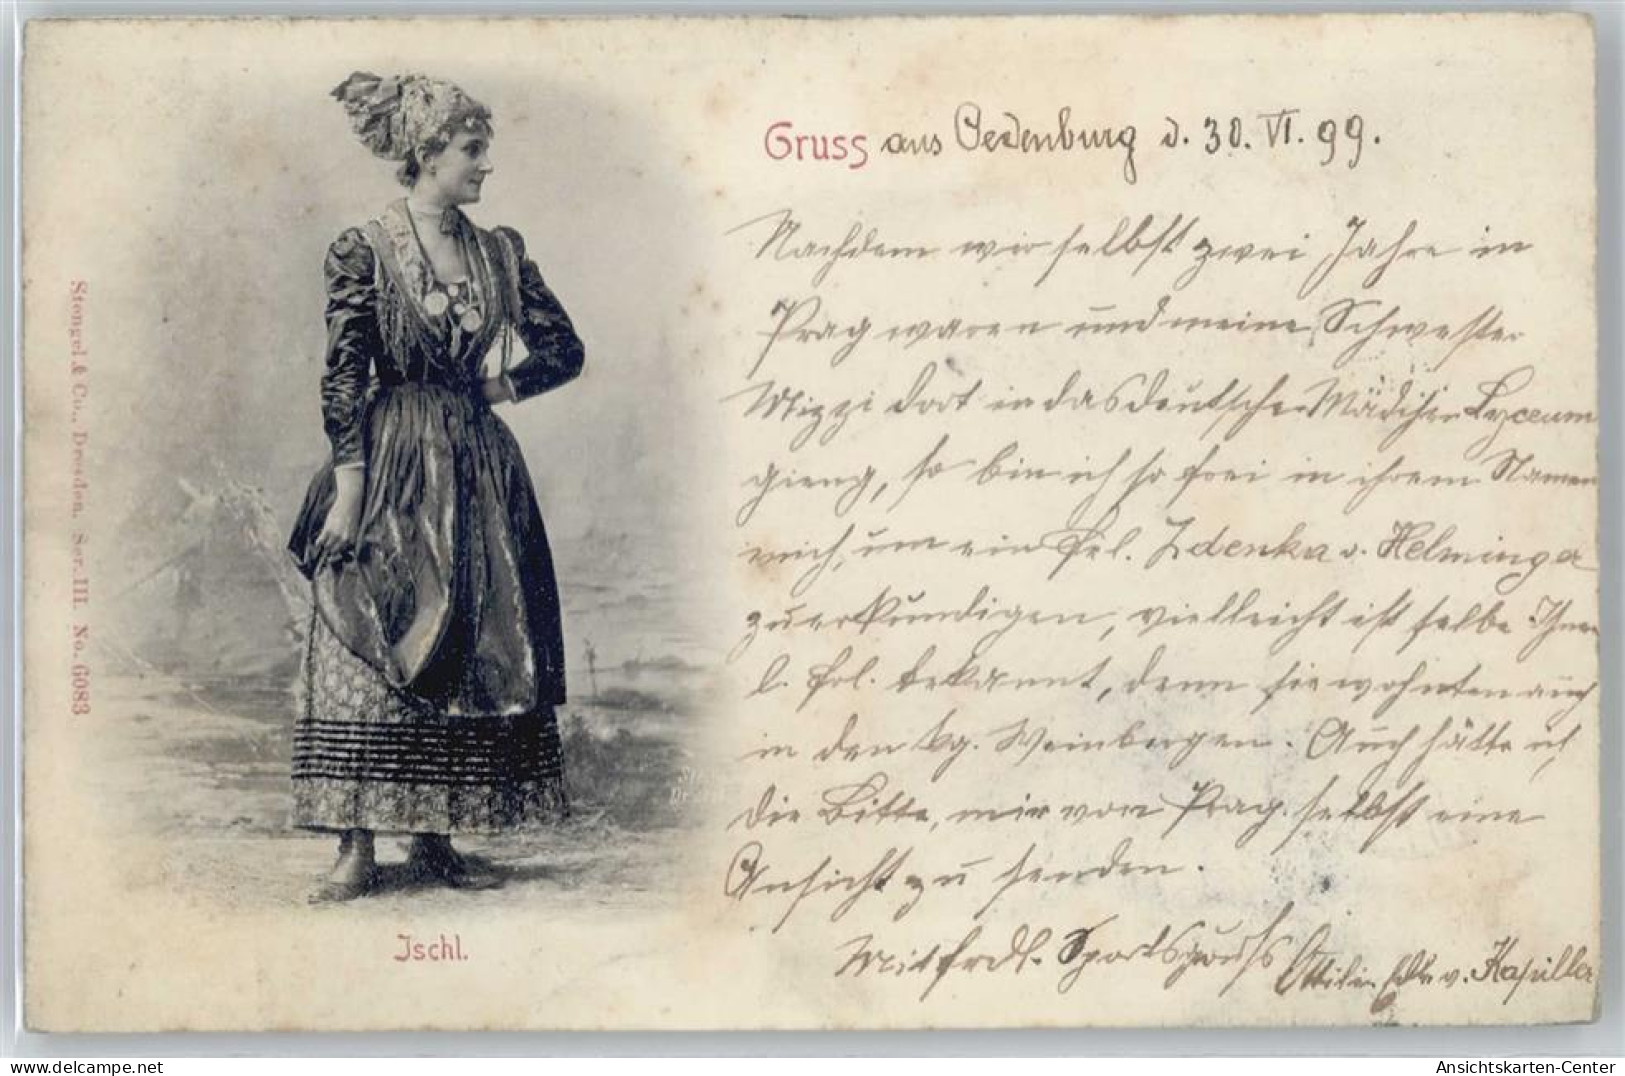 Gruss aus Oedenburg d. 30. VI. 99.
Nachdem wir selbst zwei Jahre in
Prag waren und meine Schwester
Mizzi dort in das deutsche Mädchen Lyceum
gieng, so bin ich so frei in ihrem Namen
mich, um ein Frl. Zdenka v. Helminga
zu erkundigen, vielleicht ist selbe Ihnen
l. Frl. bekannt, denn sie wohnten auch
in den kg. Weinbergen. Auch hätte ich
die Bitte, mir von Prag selbst eine
Ansicht zu senden.
Mit frdl. Sportsgruß Ottilie Edle v. Kapiller
Ischl.
Stengel & Co., Dresden. Ser. III. No. 6083
Ansichtskarten-Center